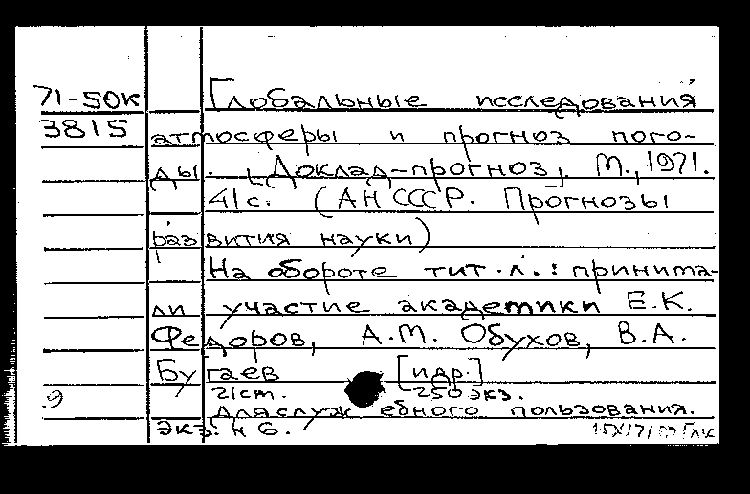 71-50К Глобальные исследования
3815 атмосферы и прогноз пого-
ды. [Доклад-прогноз]. М., 1971.
41с. (АН СССР. Прогнозы
развития науки)
На обороте тит.л.: принима-
ли участие академики Е.К.
Федоров, А.М. Обухов, В.А.
Бугаев [идр.]
9 21см. 250 экз.
Для служебного пользования.
экз. н 6.